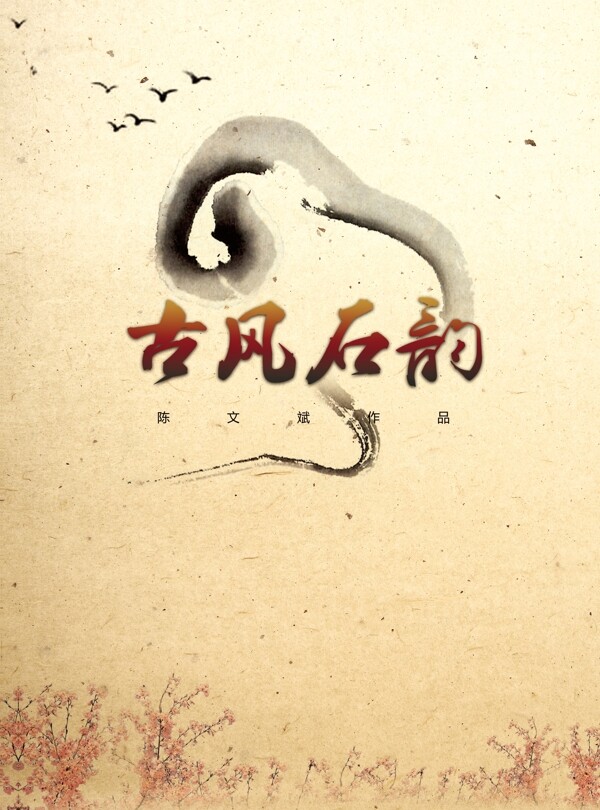 古风石韵
陈文斌作品